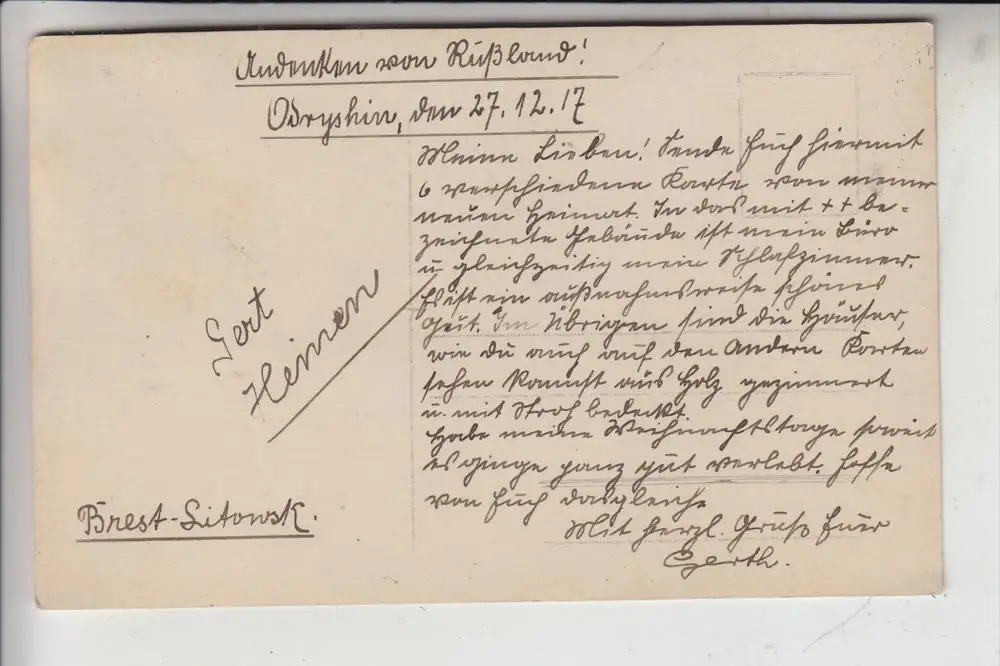 Andenken von Rußland!
Odryshin, den 27.12.17
Meine Lieben! Sende Euch hiermit
6 verschiedene Karte von meiner
neuen Heimat. In das mit ++ be=
zeichnete Gebäude ist mein Büro
u. gleichzeitig mein Schlafzimmer.
Es ist ein außnahmsweise schönes
Im Übrigen sind die Häuser,
wie du auch auf den Andern Karten
sehen kannst aus Holz gezimmert
u. mit Stroh bedeckt.
Habe meine Weihnachtstage soweit
es ginge ganz gut verlebt. Hoffe
von Euch dasgleiche
Mit herzl. Gruß Euer
Gerth.
Gert
Heinen
Brest-Litowsk.